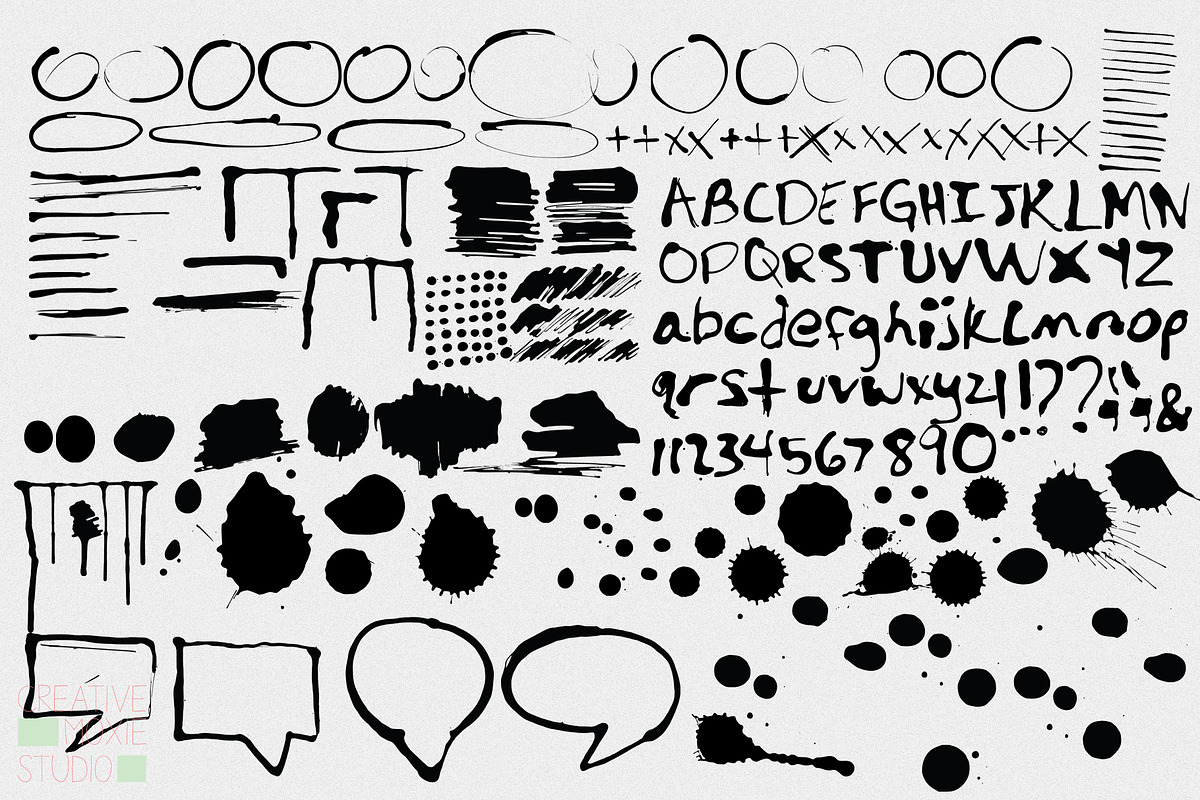 ++xX+++XxXXxXXX+X
ABCDEFGHIJKLMN
OPQRSTUVWXYZ
abcdefghijklmnop
qrstuvwxyz!!??"";&
11234567890...
CREATIVE
MOXIE
STUDIO